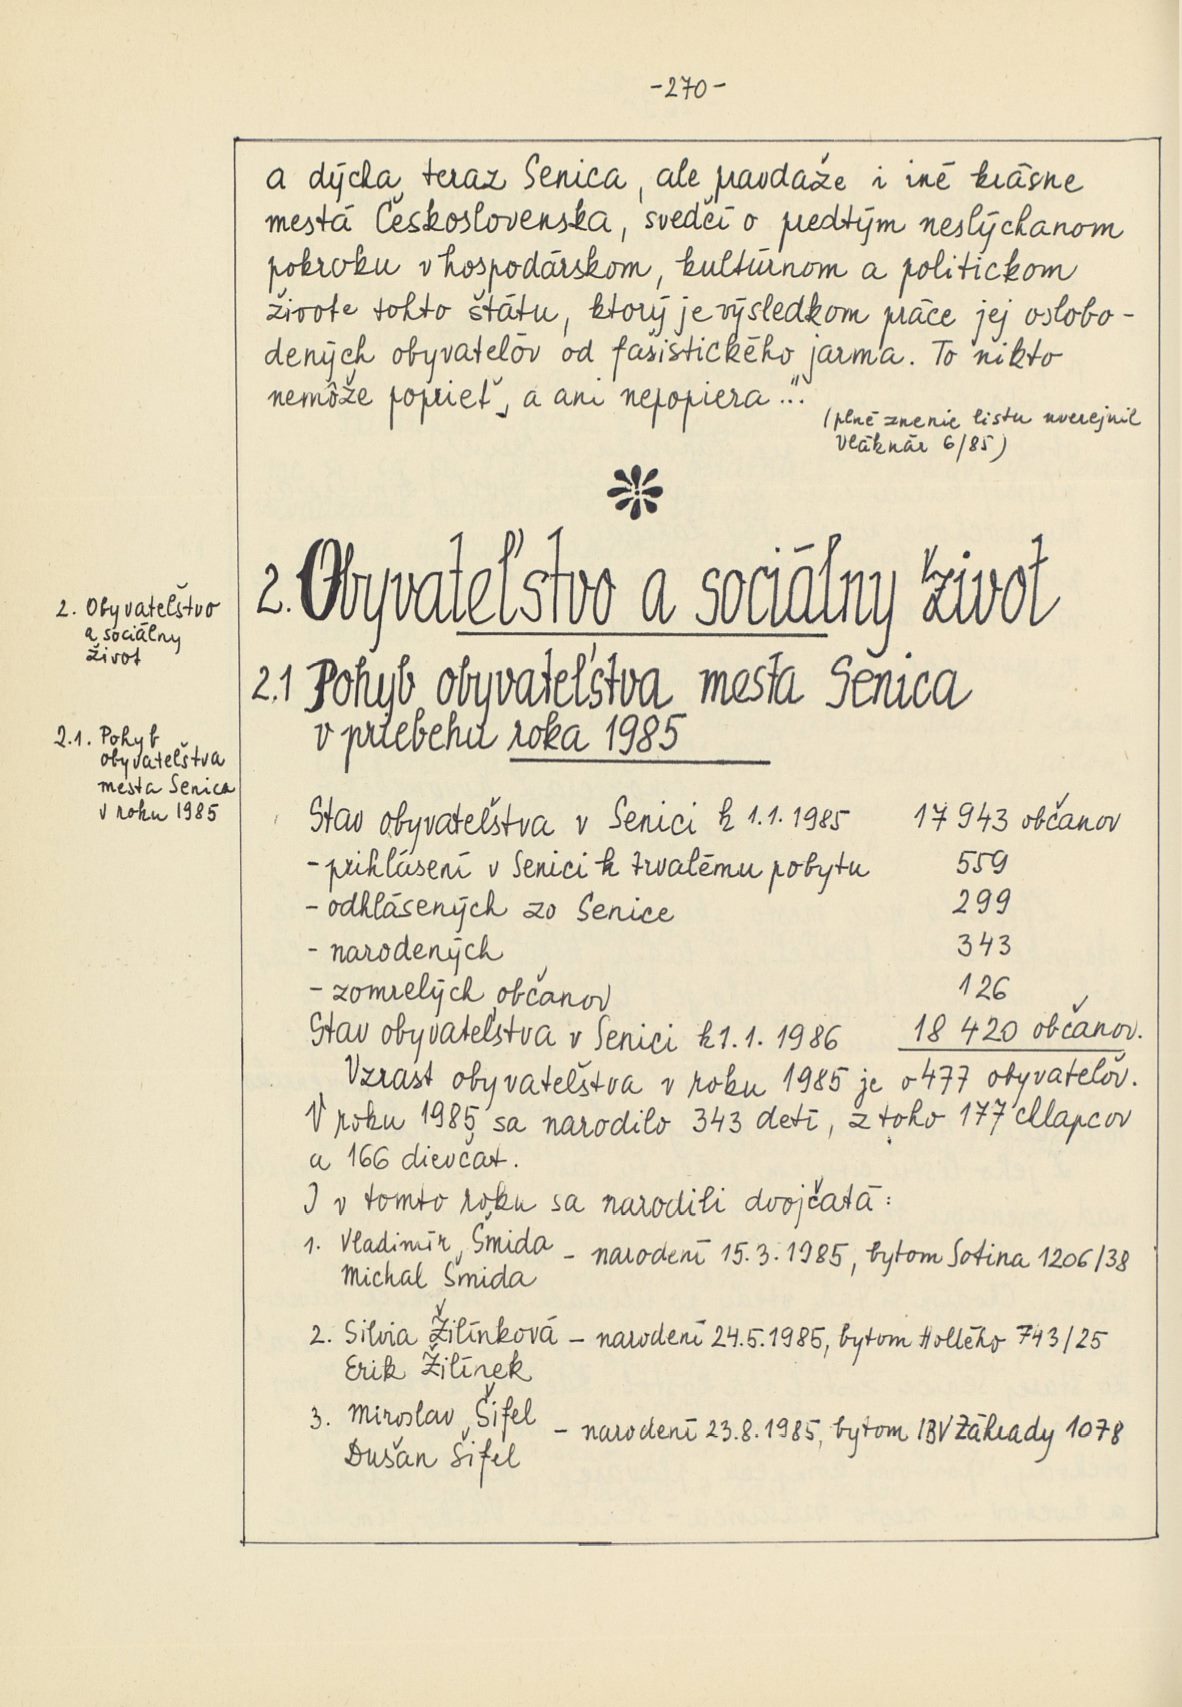 -270-
a dýcha teraz Senica, ale pravdaže i iné krásne
mestá Československa, svedčí o predtým neslýchanom
pokroku v hospodárskom, kultúrnom a politickom
živote tohto štátu, ktorý je výsledkom práce jej oslobo-
dených obyvateľov od fašistického jarma. To nikto
nemôže poprieť, a ani nepopiera..."
(plné znenie listu uverejnil
Vláknár 6/85)
2. Obyvateľstvo a sociálny život
2. Obyvateľstvo
a sociálny
život
2.1 Pohyb obyvateľstva mesta Senica
v priebehu roka 1985
2.1. Pohyb
obyvateľstva
mesta Senica
v roku 1985
Stav obyvateľstva v Senici k 1.1.1985 17 943 občanov
- prihlásení v Senici k trvalému pobytu 559
- odhlásených zo Senice 299
- narodených 343
- zomrelých občanov 126
Stav obyvateľstva v Senici k 1.1.1986 18 420 občanov.
Vzrast obyvateľstva v roku 1985 je o 477 obyvateľov.
V roku 1985 sa narodilo 343 detí, z toho 177 chlapcov
a 166 dievčat.
I v tomto roku sa narodili dvojčatá:
1. Vladimír Šmida
Michal Šmida - narodení 15.3.1985, bytom Sotina 1206/38
2. Silvia Žilínková - narodení 24.5.1985, bytom Hollého 743/25
Erik Žilínek
3. Miroslav Šifel
Dušan Šifel - narodení 23.8.1985, bytom IBV Záhrady 1078